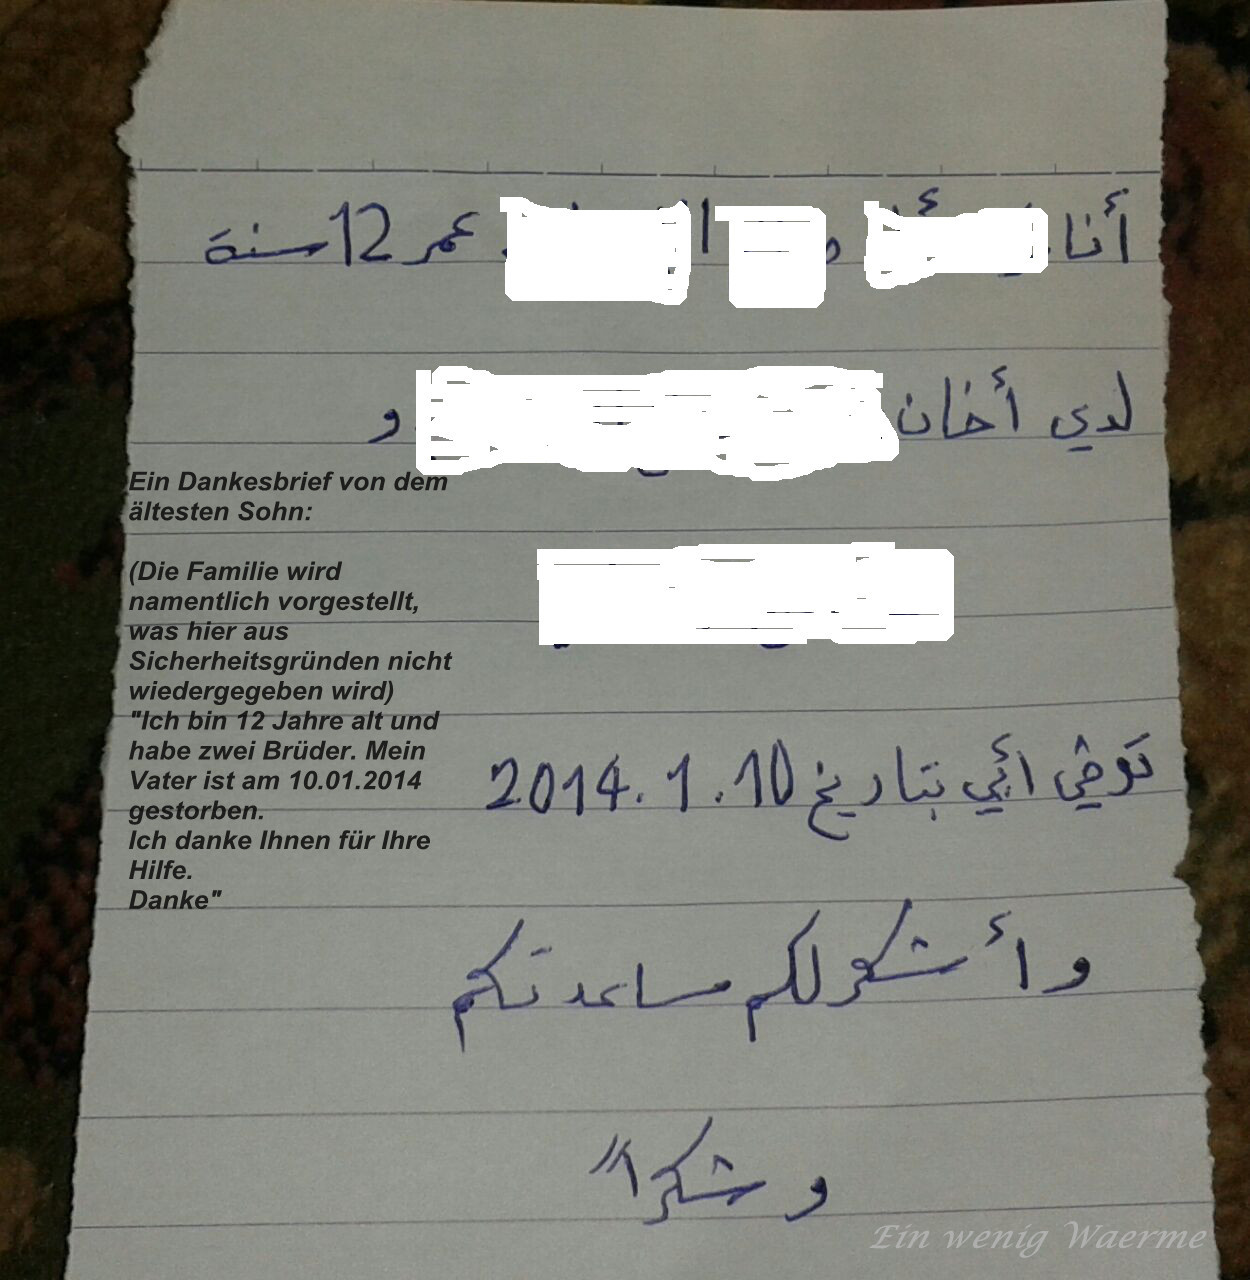 أنا عمر 12 سنة
لدي أخان و
توفي أبي بتاريخ 10.1.2014
و أشكر لكم مساعدتكم
و شكراً
Ein Dankesbrief von dem
ältesten Sohn:
(Die Familie wird
namentlich vorgestellt,
was hier aus
Sicherheitsgründen nicht
wiedergegeben wird)
"Ich bin 12 Jahre alt und
habe zwei Brüder. Mein
Vater ist am 10.01.2014
gestorben.
Ich danke Ihnen für Ihre
Hilfe.
Danke"
Ein wenig Waerme